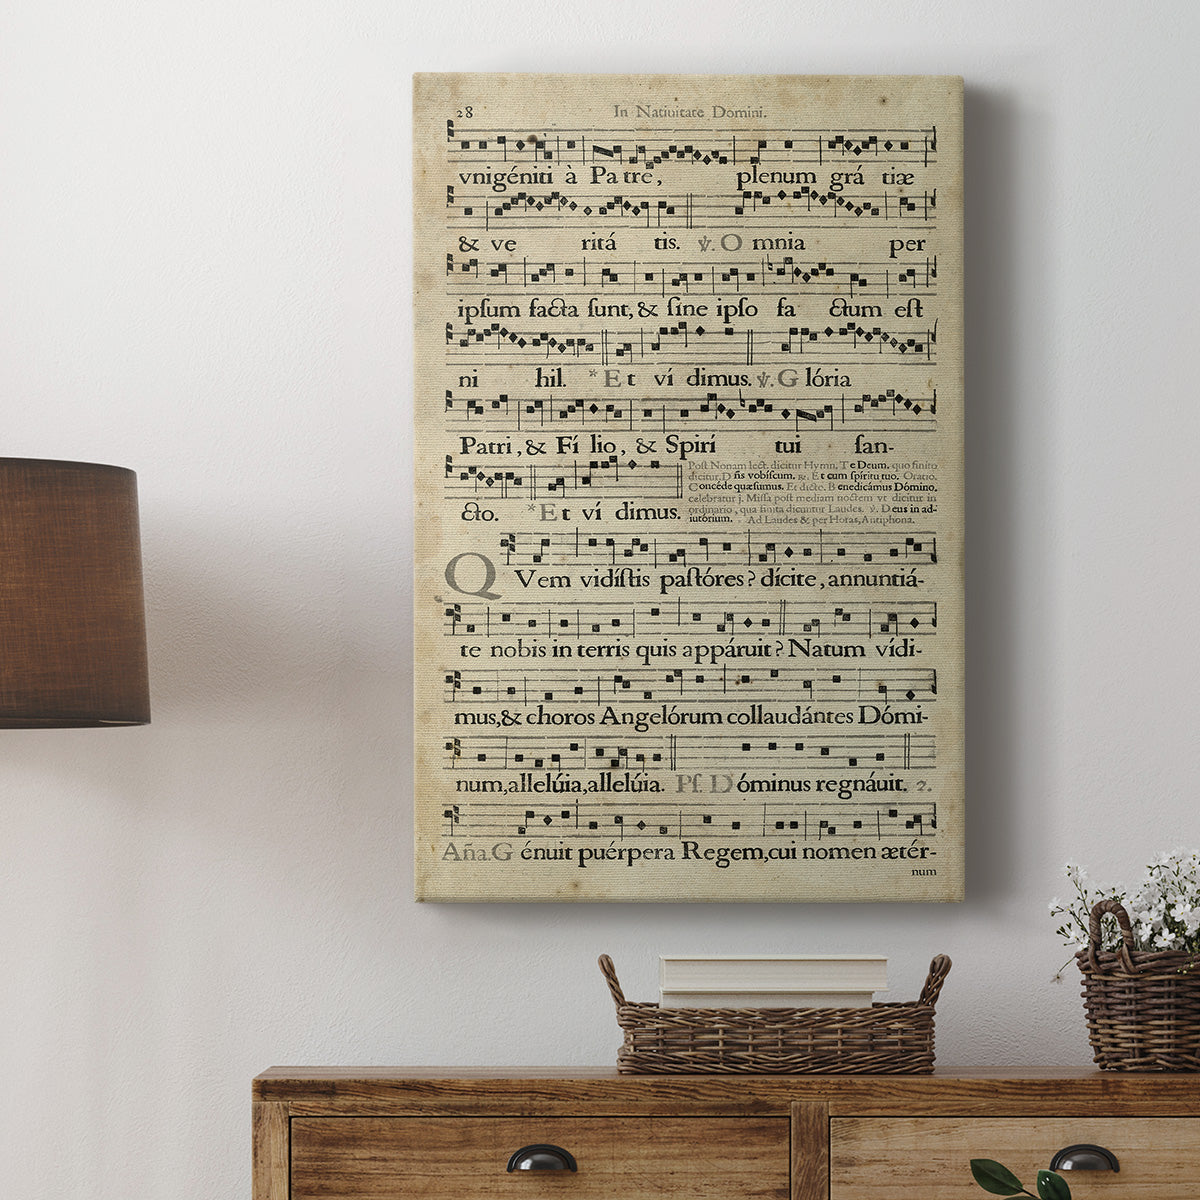 28 In Natiuitate Domini.
vnigéniti à Pa tre, plenum grá tiæ
& ve ritá tis. ℣. O mnia per
ipſum facta ſunt, & ſine ipſo fa ctum eſt
ni hil. * Et ví dimus. ℣. G lória
Patri, & Fí lio, & Spirí tui ſan-
cto. * Et ví dimus.
Poſt Nonam lect. dicitur Hymn. Te Deum. quo finito
dicitur, D ñs vobíſcum. ℟. Et cum ſpíritu tuo. Oratio.
Concéde quæſumus. Et dicto. B enedicámus Dómino.
celebratur j. Miſſa poſt mediam noctem vt dicitur in
ordinario, qua finita dicuntur Laudes. ℣. D eus in ad-
iutórium. Ad Laudes & per Horas, Antiphona.
QVem vidíſtis paſtóres? dícite, annuntiá-
te nobis in terris quis appáruit? Natum vídi-
mus, & choros Angelórum collaudántes Dómi-
num, allelúia, allelúia. Pſ. Dóminus regnáuit. 2.
Aña. G énuit puérpera Regem, cui nomen ætér-
num